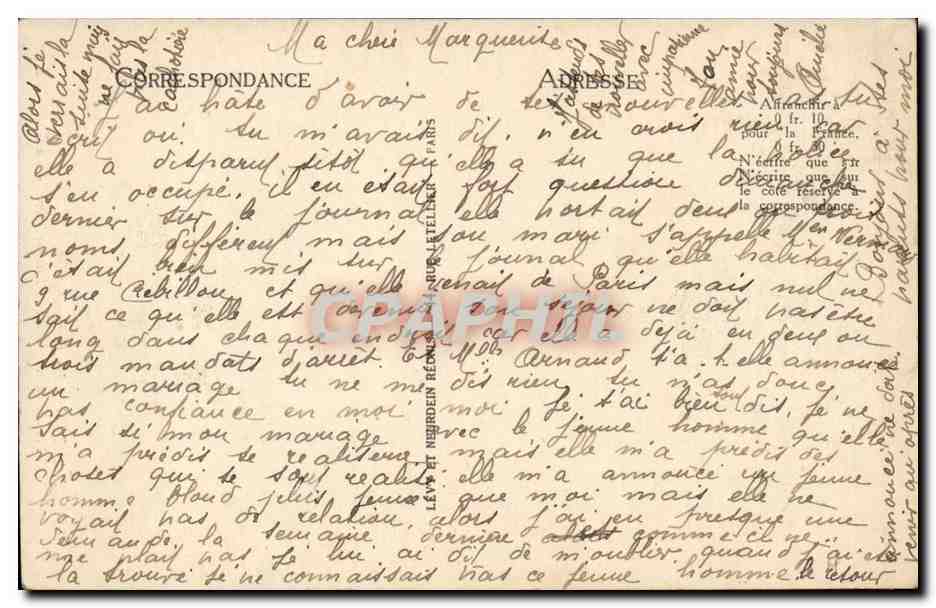 Ma chere Marguerite
CORRESPONDANCE
ADRESSE
J'ai hate d'avoir de tes nouvelles as tu
ecrit ou tu m'avais dit, n'en crois rien car
elle a disparut sitôt qu'elle a su que la police
s'en occupé, il en était fort question dimanche
dernier sur le journal elle portait deux ou trois
noms différent mais son mari s'appelle
c'était bien mis sur le journal qu'elle habitait
9 rue Crébillon et qu'elle venait de Paris mais nul ne
sait ce qu'elle est devenu son séjour ne doit pas être
long dans chaque endroit car elle a déjà eu deux ou
trois mandats d'arret. Et Arnaud t'a-t-elle annoncé
un mariage tu ne me dis rien, tu n'as donc
pas confiance en moi, moi je t'ai bien tout dit, je ne
sais si mon mariage avec le jeune homme qu'elle
m'a prédis se realisera mais elle m'a prédis des
choses qui se sont realisé elle m'a annoncé un jeune
homme blond plus jeune que moi mais elle ne
voyait pas de relation, alors j'ai eu presque une
demande la semaine derniere comme ci ne
me plait pas je lui ai dit de m'oublier quand j'ai été
la trouvé je ne connaissais pas ce jeune homme le retour
annoncé ne doit
venir qu'après
Alors je
versais la
suite mais
ne fait
pas la
J'attends
de tes
nouvelles
avec
impatience
Ton
amie
pour
toujours
Bonjour à tes
parents pour moi
Affranchir à
0 fr. 10
pour la France.
0 fr. 30
N'écrire que sur
N'écrire que sur
le côté réservé à
la correspondance.
LÉVY ET NEURDEIN RÉUNIS, 44, RUE LETELLIER, PARIS
CPAPHIL